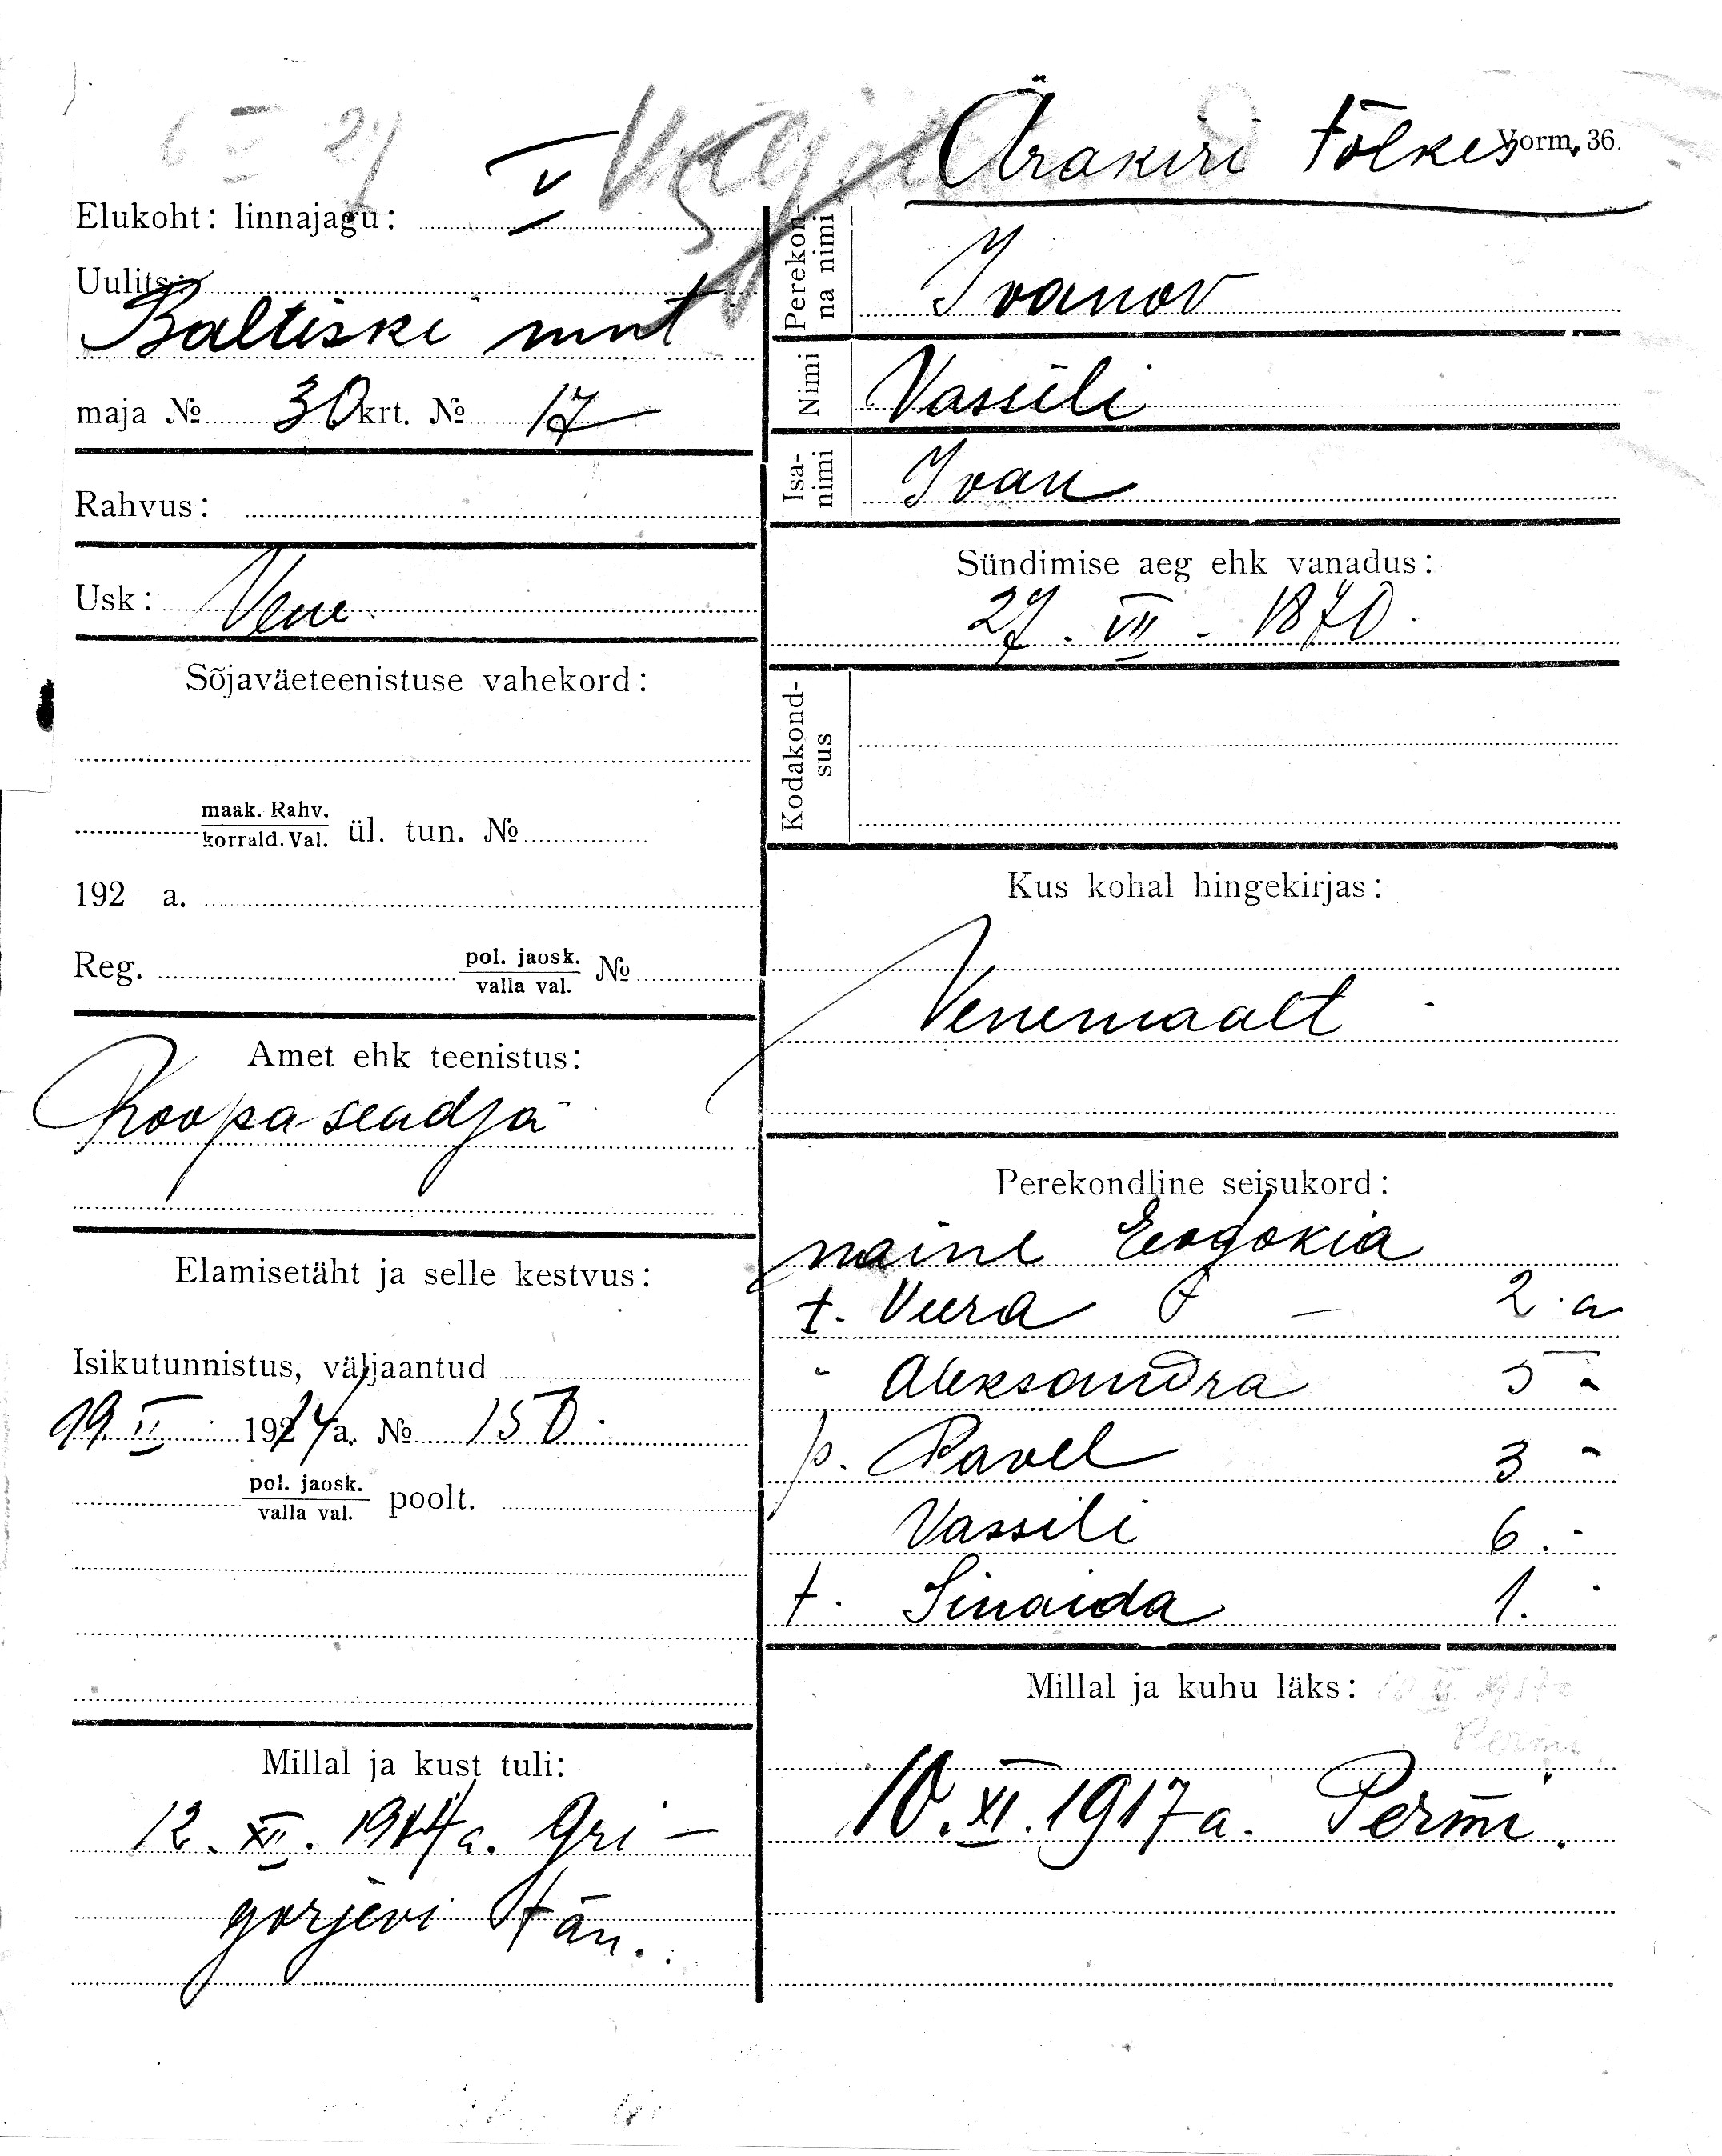 Ärakiri tõlkes
Vorm. 36.
Elukoht: linnajagu: V
Uulits:
Baltiski mnt
maja № 30 krt. № 17
Rahvus:
Usk: Vene
Sõjaväeteenistuse vahekord:
maak. Rahv.
korrald. Val. ül. tun. №
192 a.
Reg. pol. jaosk.
valla val. №
Amet ehk teenistus:
Roopaseadja
Elamisetäht ja selle kestvus:
Isikutunnistus, väljaantud
19. II 1914 a. № 150.
pol. jaosk.
valla val. poolt.
Millal ja kust tuli:
12. XII. 1914 a. Gri-
gorjevi tän.
Perekon-
na nimi
Ivanov
Nimi
Vassili
Isa-
nimi
Ivan
Sündimise aeg ehk vanadus:
27. VII - 1870.
Kodakond-
sus
Kus kohal hingekirjas:
Venemaalt
Perekondline seisukord:
naine Evdokia
t. Veera 2. a
" Aleksandra 5 "
p. Pavel 3 "
Vassili 6. "
t. Sinaida 1. "
Millal ja kuhu läks:
10. XI. 1917 a. Permi.